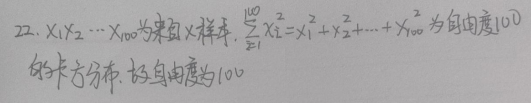 22. X₁X₂…X₁₀₀为来自X样本, \sum_{i=1}^{100} X_i^2 = X_1^2+X_2^2+…+X_{100}^2 为自由度100
的卡方分布.故自由度为100